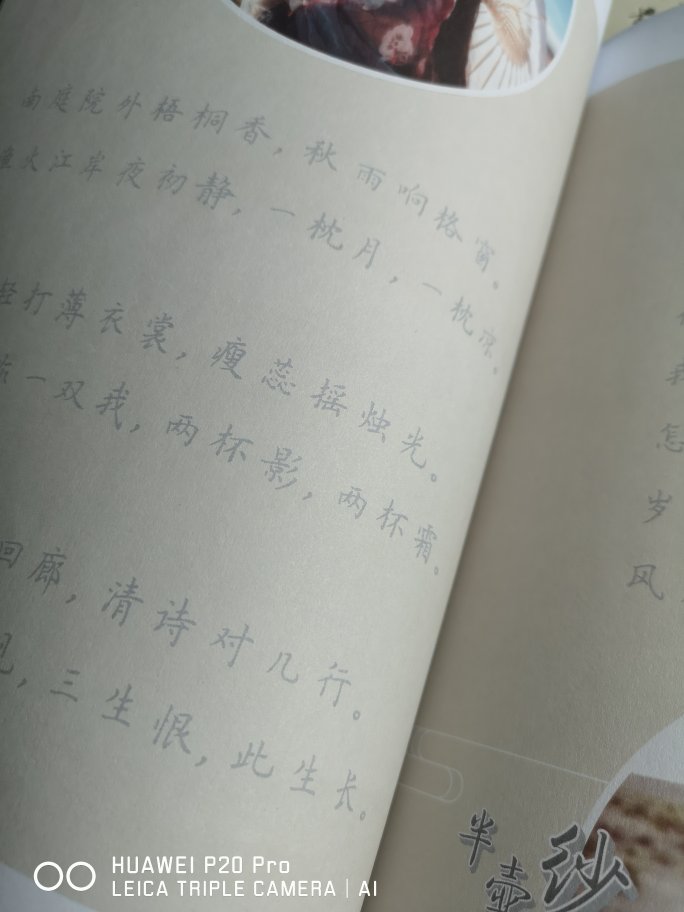 南庭院外梧桐香，秋雨响格窗。
火江岸夜初静，一枕月，一枕凉。
轻打薄衣裳，瘦蕊摇烛光。
一双我，两杯影，两杯霜。
回廊，清诗对几行。
见，三生恨，此生长。
怎
岁
风
半壶纱
HUAWEI P20 Pro
LEICA TRIPLE CAMERA | AI